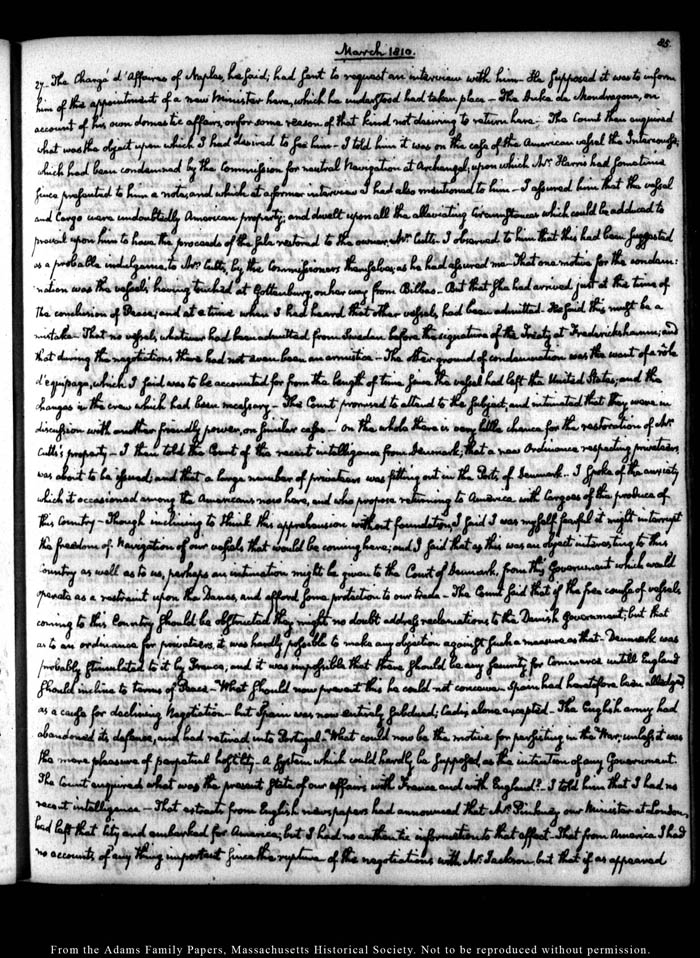 85.
March 1810.
27. The Chargé d'Affaires of Naples, he said; had sent to request an interview with him. He supposed it was to inform
him of the appointment of a new Minister here, which he understood had taken place — The Duke de Mondragone, on
account of his own domestic affairs, or for some reason of that kind not desiring to return here. The Count then enquired
what was the object upon which I had desired to see him — I told him it was on the case of the American vessel the Intercourse;
which had been condemned by the Commission for neutral Navigation at Archangel; upon which Mr. Harris had sometime
since presented to him a note; and which at a former interview I had also mentioned to him — I assured him that the vessel
and Cargo were undoubtedly American property; and dwelt upon all the alleviating Circumstances which could be adduced to
prevail upon him to have the proceeds of the sale restored to the owner, Mr. Cutts. I observed to him that this had been suggested
as a probable indulgence, to Mr. Cutts, by the Commissioners themselves, as he had assured me. That one motive for the condem:
nation was the vessel's having touched at Gottenburg, on her way from Bilbao — But that she had arrived just at the time of
the conclusion of Peace; and at a time when I had heard that other vessels, had been admitted. He said this must be a
mistake. That no vessel, whatever had been admitted from Sweden before the signature of the Treaty at Frederickshamn; and
that during the negotiations there had not even been an armistice — The other ground of condemnation was the want of a rôle
d'equipage, which I said was to be accounted for from the length of time since the vessel had left the United States; and the
changes in the crew which had been necessary. The Count promised to attend to the subject; and intimated that they were in
discussion with another friendly power, on similar cases — On the whole there is very little chance for the restoration of Mr.
Cutts's property — I then told the Count of the recent intelligence from Denmark; that a new Ordinance respecting privateers,
was about to be issued; and that a large number of privateers was fitting out in the Ports of Denmark. I spoke of the anxiety
which it occasioned among the Americans now here, and who propose returning to America with Cargoes of the produce of
this Country — Though inclining to think this apprehension without foundation, I said I was myself fearful it might interrupt
the freedom of Navigation of our vessels that would be coming here; and I said that as this was an object interesting to this
Country as well as to us, perhaps an intimation might be given to the Court of Denmark, from this Government which would
operate as a restraint upon the Danes, and afford some protection to our trade — The Count said that if the free course of vessels
coming to this Country should be obstructed they might no doubt address reclamations to the Danish Government; but that
as to an ordinance for privateers, it was hardly possible to make any objection against such a measure as that. Denmark was
probably stimulated to it by France; and it was impossible that there should be any security for Commerce untill England
should incline to terms of Peace — What should now prevent this he could not conceive. Spain had heretofore been alledged
as a cause for declining Negotiation — but Spain was now entirely subdued; Cadiz, alone excepted. The English army had
abandoned its defence, and had retired into Portugal. What could now be the motive for persisting in the War; unless it was
the mere pleasure of perpetual hostility — A System which could hardly be supposed, as the intention of any Government.
The Count enquired what was the present State of our affairs with France and with England? — I told him that I had no
recent intelligence — That extracts from English newspapers had announced that Mr. Pinkney our Minister at London,
had left that City and embarked for America; but I had no authentic information to that effect — That from America I had
no accounts, of any thing important since the rupture of the negotiations with Mr. Jackson, but that if as appeared
From the Adams Family Papers, Massachusetts Historical Society. Not to be reproduced without permission.